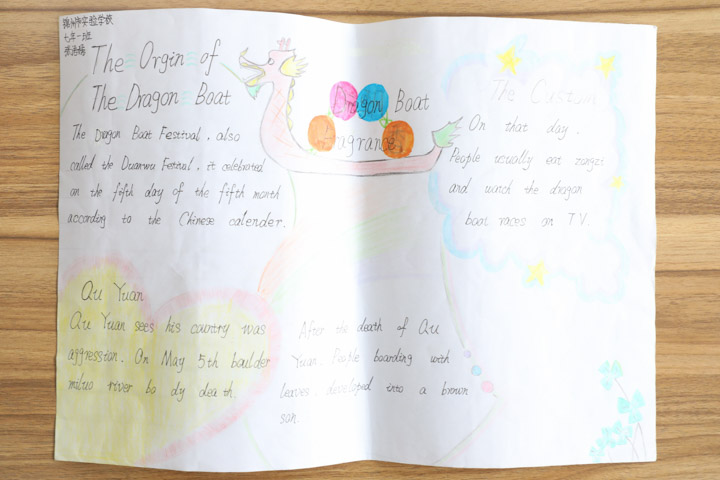 锦州市实验学校
七年一班
The Orgin of
The Dragon Boat
The Dragon Boat Festival, also
called the Duanwu Festival, it celebrated
on the fifth day of the fifth month
according to the Chinese calender.
Dragon Boat
Fragrance
The Custom
On that day,
People usually eat zongzi
and watch the dragon
boat races on T.V.
Qu Yuan
Qu Yuan sees his country was
aggression. On May 5th boulder
miluo river bo dy dea th.
After the death of Qu
Yuan. People boarding with
leaves, developed into a brown
son.